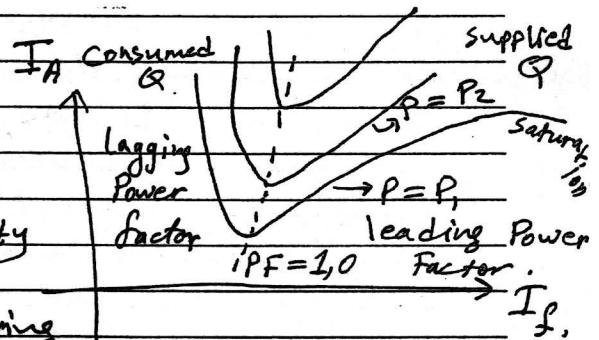 I_A consumed Q
supplied Q
P = P2
saturation
Lagging Power factor
P = P1
leading Power Factor.
PF = 1,0
I_f.